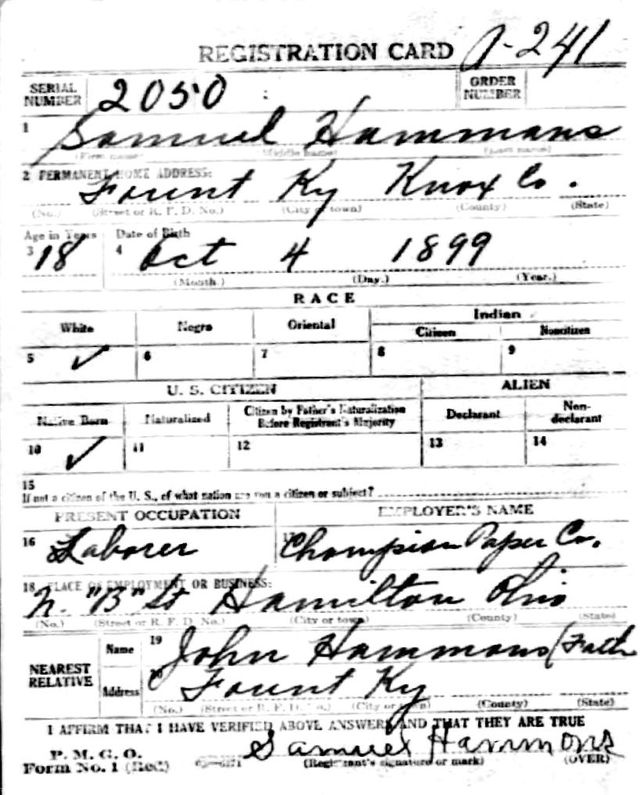 REGISTRATION CARD A-241
SERIAL NUMBER 2050 : ORDER NUMBER
1 Samuel Hammons
(First name) (Middle name) (Last name)
2 PERMANENT HOME ADDRESS:
Fount Ky Knox Co.
(No.) (Street or R. F. D. No.) (City or town) (County) (State)
Age in Years Date of Birth
3 18 4 Oct 4 1899
(Month.) (Day.) (Year.)
RACE
White Negro Oriental Indian
Citizen Noncitizen
5 ✓ 6 7 8 9
U. S. CITIZEN ALIEN
Native Born Naturalized Citizen by Father's Naturalization Before Registrant's Majority Declarant Non-declarant
10 ✓ 11 12 13 14
15
If not a citizen of the U. S., of what nation are you a citizen or subject?
PRESENT OCCUPATION EMPLOYER'S NAME
16 Laborer 17 Champion Paper Co.
18 PLACE OF EMPLOYMENT OR BUSINESS:
N. "B" St Hamilton Ohio
(No.) (Street or R. F. D. No.) (City or town) (County) (State)
NEAREST RELATIVE Name 19 John Hammons (Fath
Address 20 Fount Ky
(No.) (Street or R. F. D. No.) (City or town) (County) (State)
I AFFIRM THAT I HAVE VERIFIED ABOVE ANSWERS AND THAT THEY ARE TRUE
P. M. G. O.
Form No. 1 (Red) Samuel Hammons
(Registrant's signature or mark) (OVER)